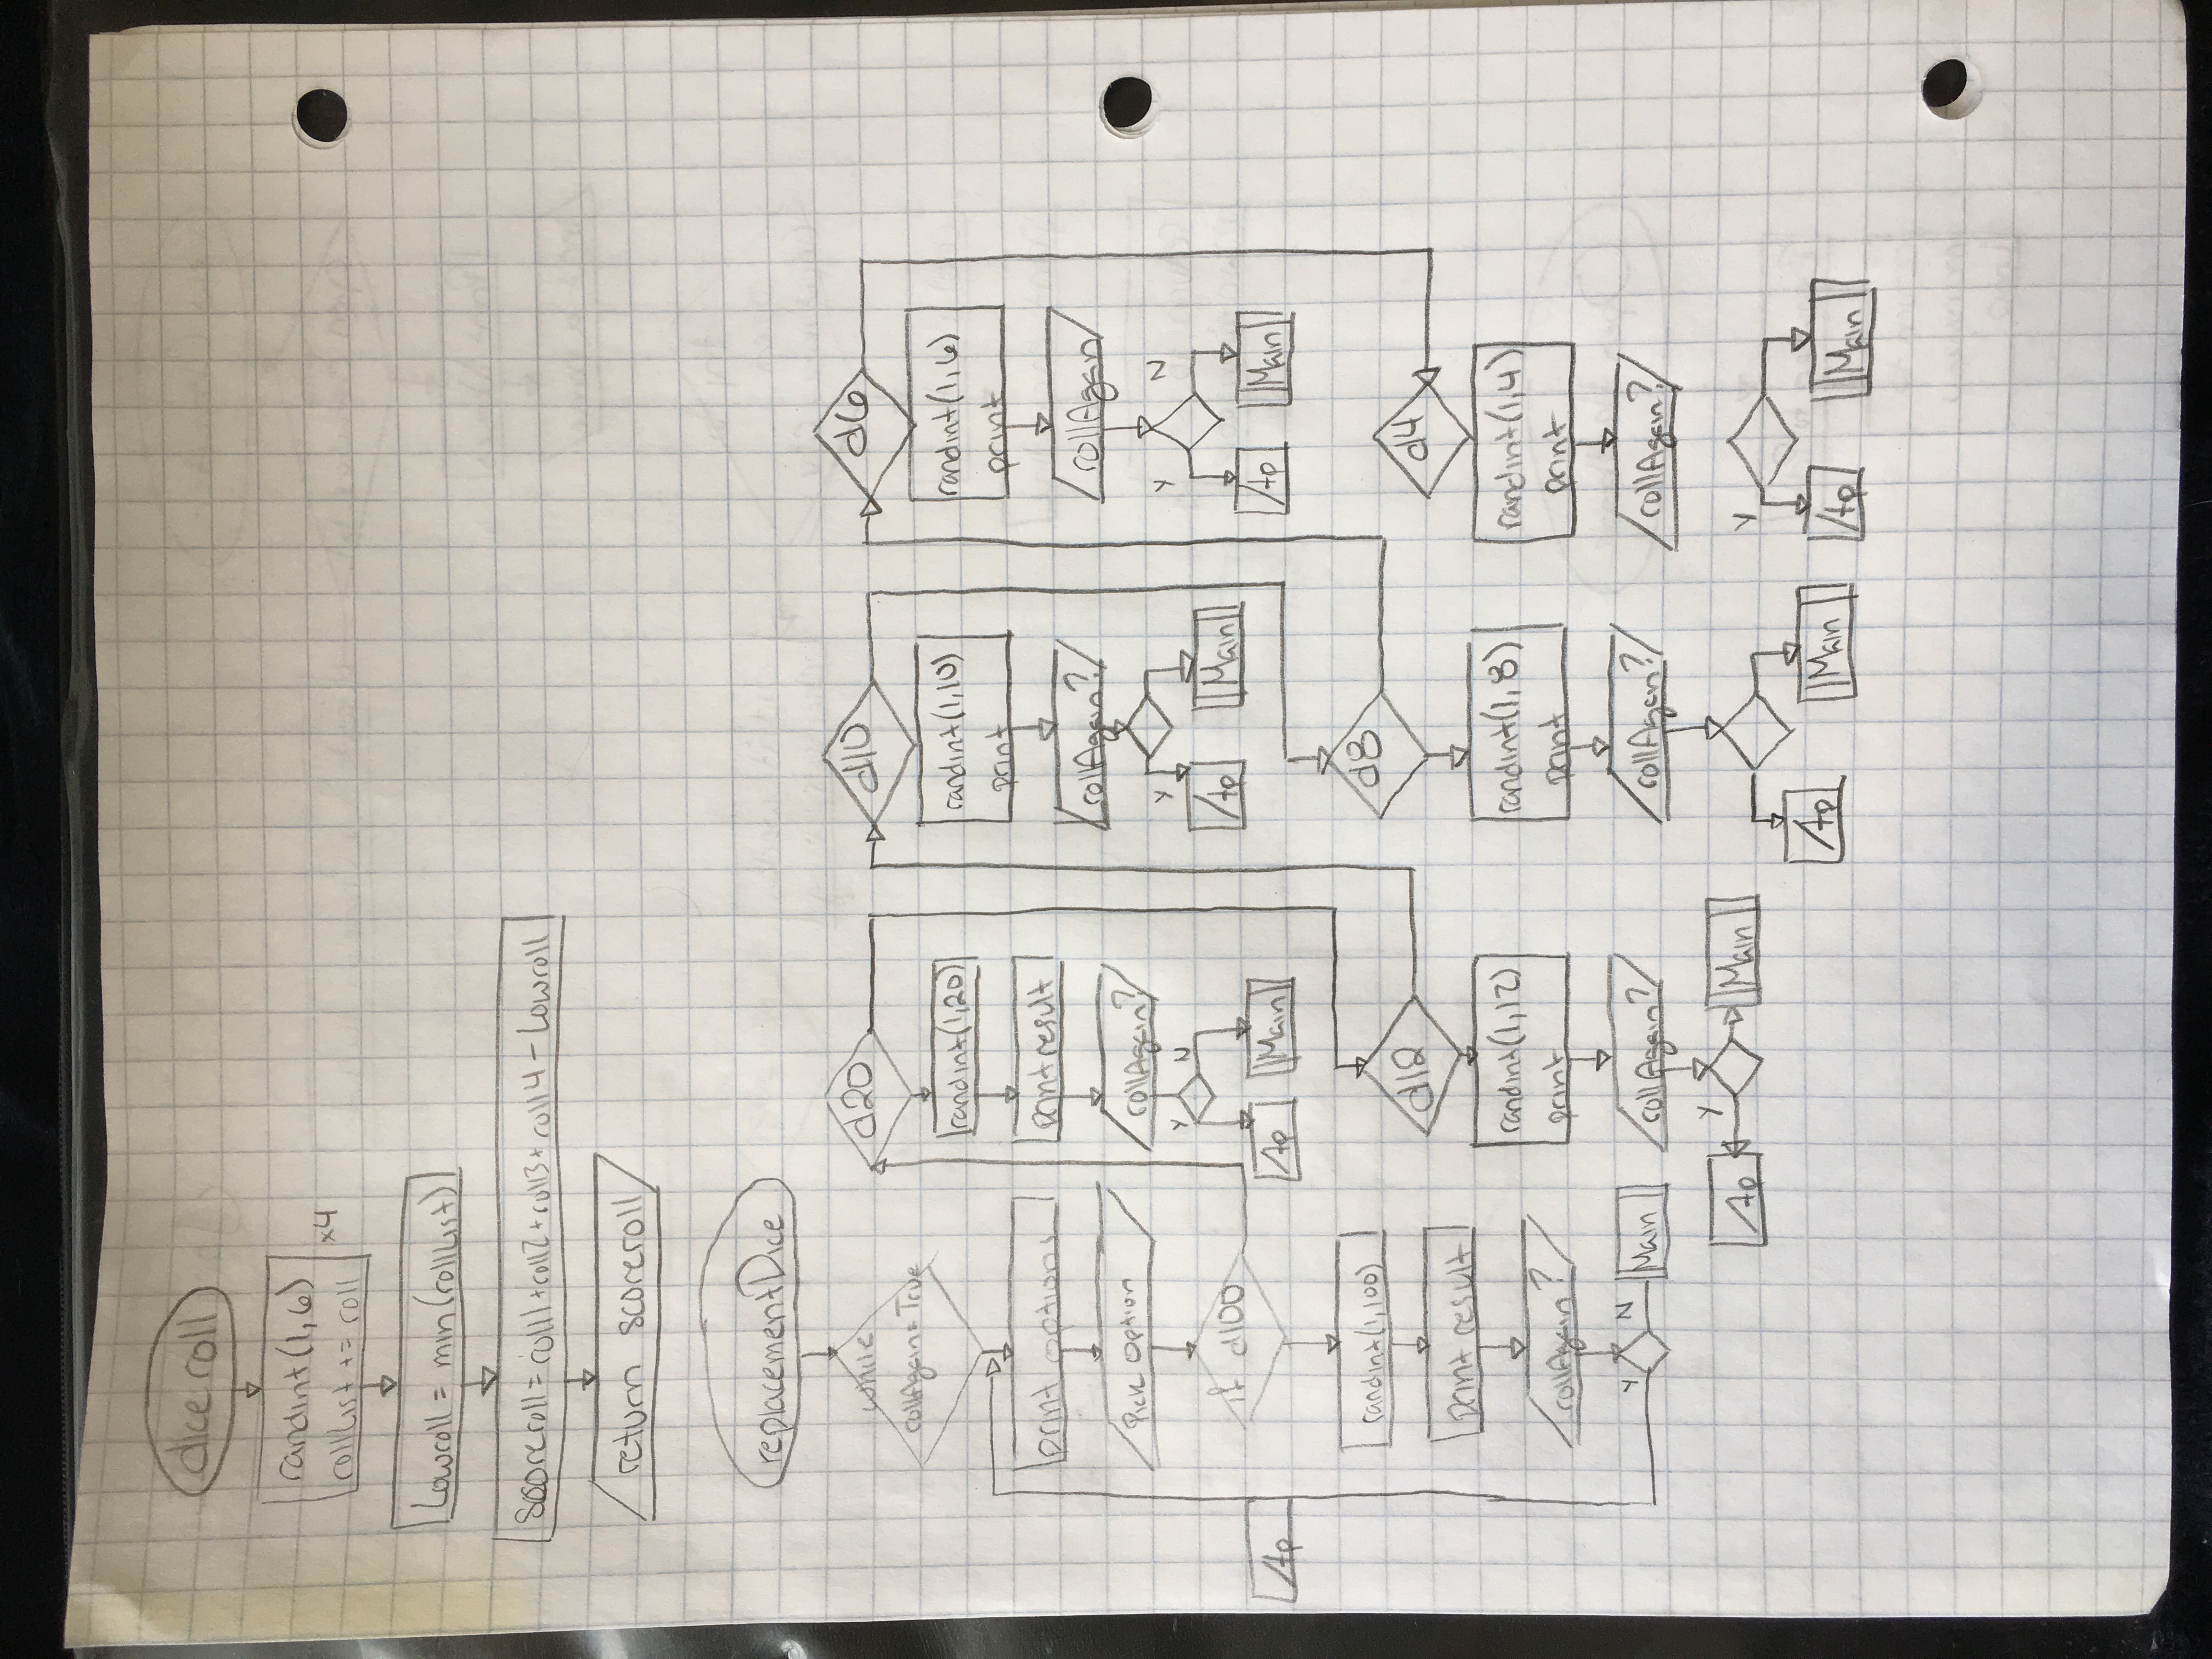 dice roll
randint(1,6)
rollList += roll
x4
Lowroll = min(rollList)
Scoreroll = roll1+roll2+roll3+roll4-Lowroll
return scoreroll
replacementDice
while
rollAgain = True
print options
Pick Option
if d100
randint(1,100)
print result
rollAgain?
Y
N
Main
d20
randint(1,20)
print result
rollAgain?
Y
N
Main
d12
randint(1,12)
print
rollAgain?
Y
Main
d10
randint(1,10)
print
rollAgain?
Y
Main
d8
randint(1,8)
print
rollAgain?
Main
d6
randint(1,6)
print
rollAgain
Y
N
Main
d4
randint(1,4)
print
rollAgain?
Y
Main